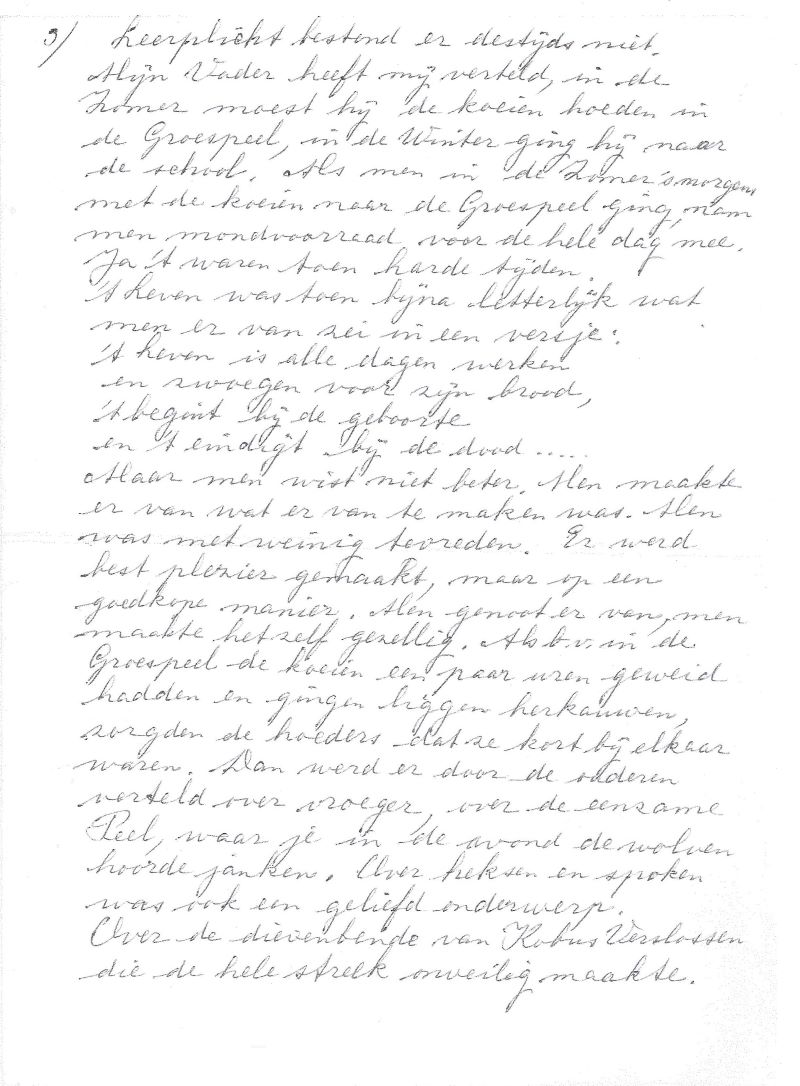 3/ Leerplicht bestond er destijds niet.
Mijn Vader heeft mij verteld, in de
Zomer moest hij de koeien hoeden in
de Groespeel, in de Winter ging hij naar
de school. Als men in de Zomer 's morgens
met de koeien naar de Groespeel ging, nam
men mondvoorraad voor de hele dag mee.
Ja 't waren toen harde tijden.
't Leven was toen bijna letterlijk wat
men er van zei in een versje:
't Leven is alle dagen werken
en zwoegen voor zijn brood,
't begint bij de geboorte
en 't eindigt bij de dood .....
Maar men wist niet beter. Men maakte
er van wat er van te maken was. Men
was met weinig tevreden. Er werd
best plezier gemaakt, maar op een
goedkope manier. Men genoot er van, men
maakte het zelf gezellig. Als b.v. in de
Groespeel de koeien een paar uren geweid
hadden en gingen liggen herkauwen,
zorgden de hoeders dat ze kort bij elkaar
waren. Dan werd er door de ouderen
verteld over vroeger, over de eenzame
Peel, waar je in de avond de wolven
hoorde janken. Over heksen en spoken
was ook een geliefd onderwerp.
Over de dievenbende van Kobus Verslossen
die de hele streek onveilig maakte.